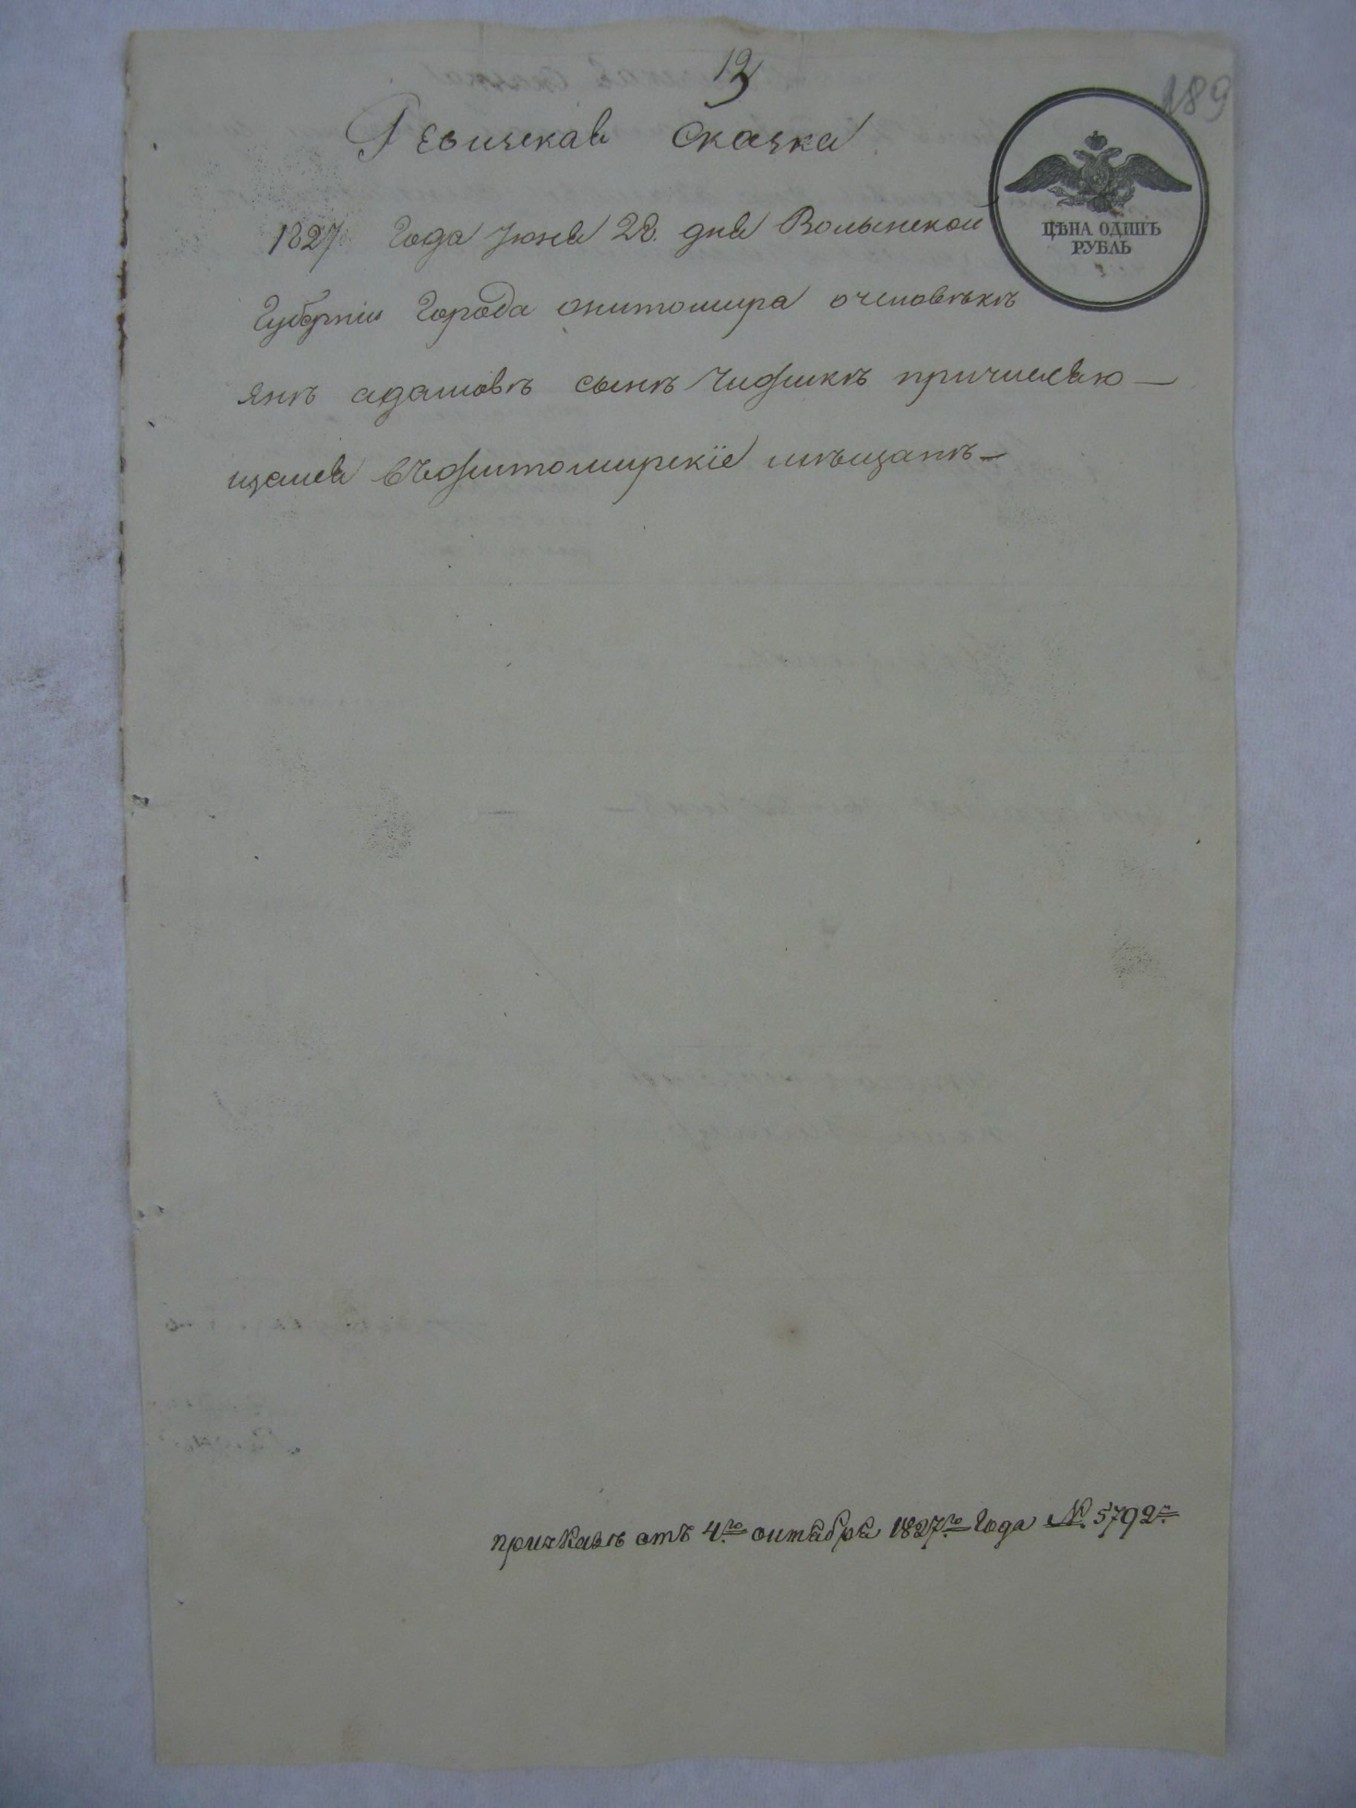 13
189
Ревизская Сказка
ЦѢНА ОДИНЪ
РУБЛЬ
1827 Года Июня 28. дня Волынской
Губерніи Города житомира очеловѣкѣ
янѣ адамовѣ сынѣ причисляю—
щемся вЪжитомирскіе мѣщанѣ—
приказъ отъ 4го октября 1827го Года № 5792й